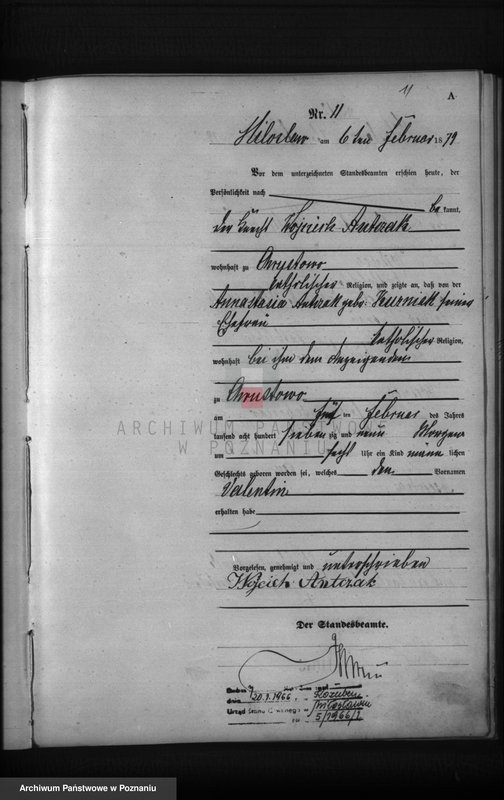 11
A
Nr. 11
Miloslaw am 6 ten Februar 1879
Vor dem unterzeichneten Standesbeamten erschien heute, der
Persönlichkeit nach
be kannt,
der Knecht Wojciech Antczak
wohnhaft zu Chrustowo
katholischer Religion, und zeigte an, daß von der
Annastasia Antczak geb. Kuzniak seiner
Ehefrau
katholischer Religion,
wohnhaft bei ihm dem Anzeigenden
zu Chrustowo
am fünf ten Februar des Jahres
tausend acht hundert sieben zig und neun Morgens
um sechs Uhr ein Kind männ lichen
Geschlechts geboren worden sei, welches den Vornamen
Valentin
erhalten habe
Vorgelesen, genehmigt und unterschrieben
Wojciech Antczak
Der Standesbeamte.
dnia 20.1.1966
Urząd Stanu Cywilnego w Miłosławiu
5/1966/I
ARCHIWUM PAŃSTWOWE
W POZNANIU
Archiwum Państwowe w Poznaniu